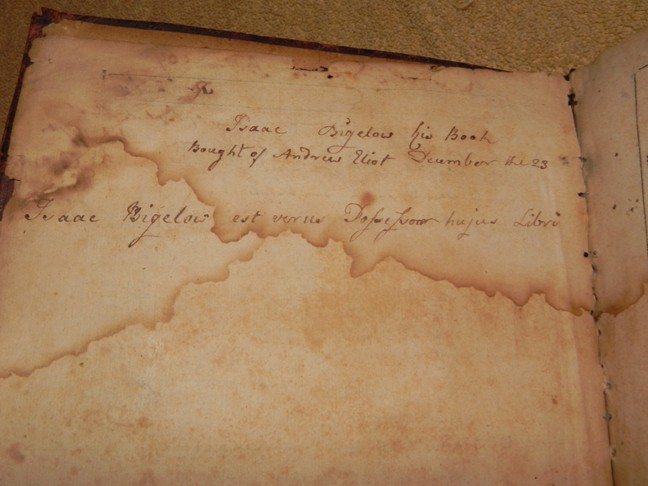 Isaac Bigelow his Book
Bought of Andrew Eliot December the 23
Isaac Bigelow est verus Possessor hujus Libri